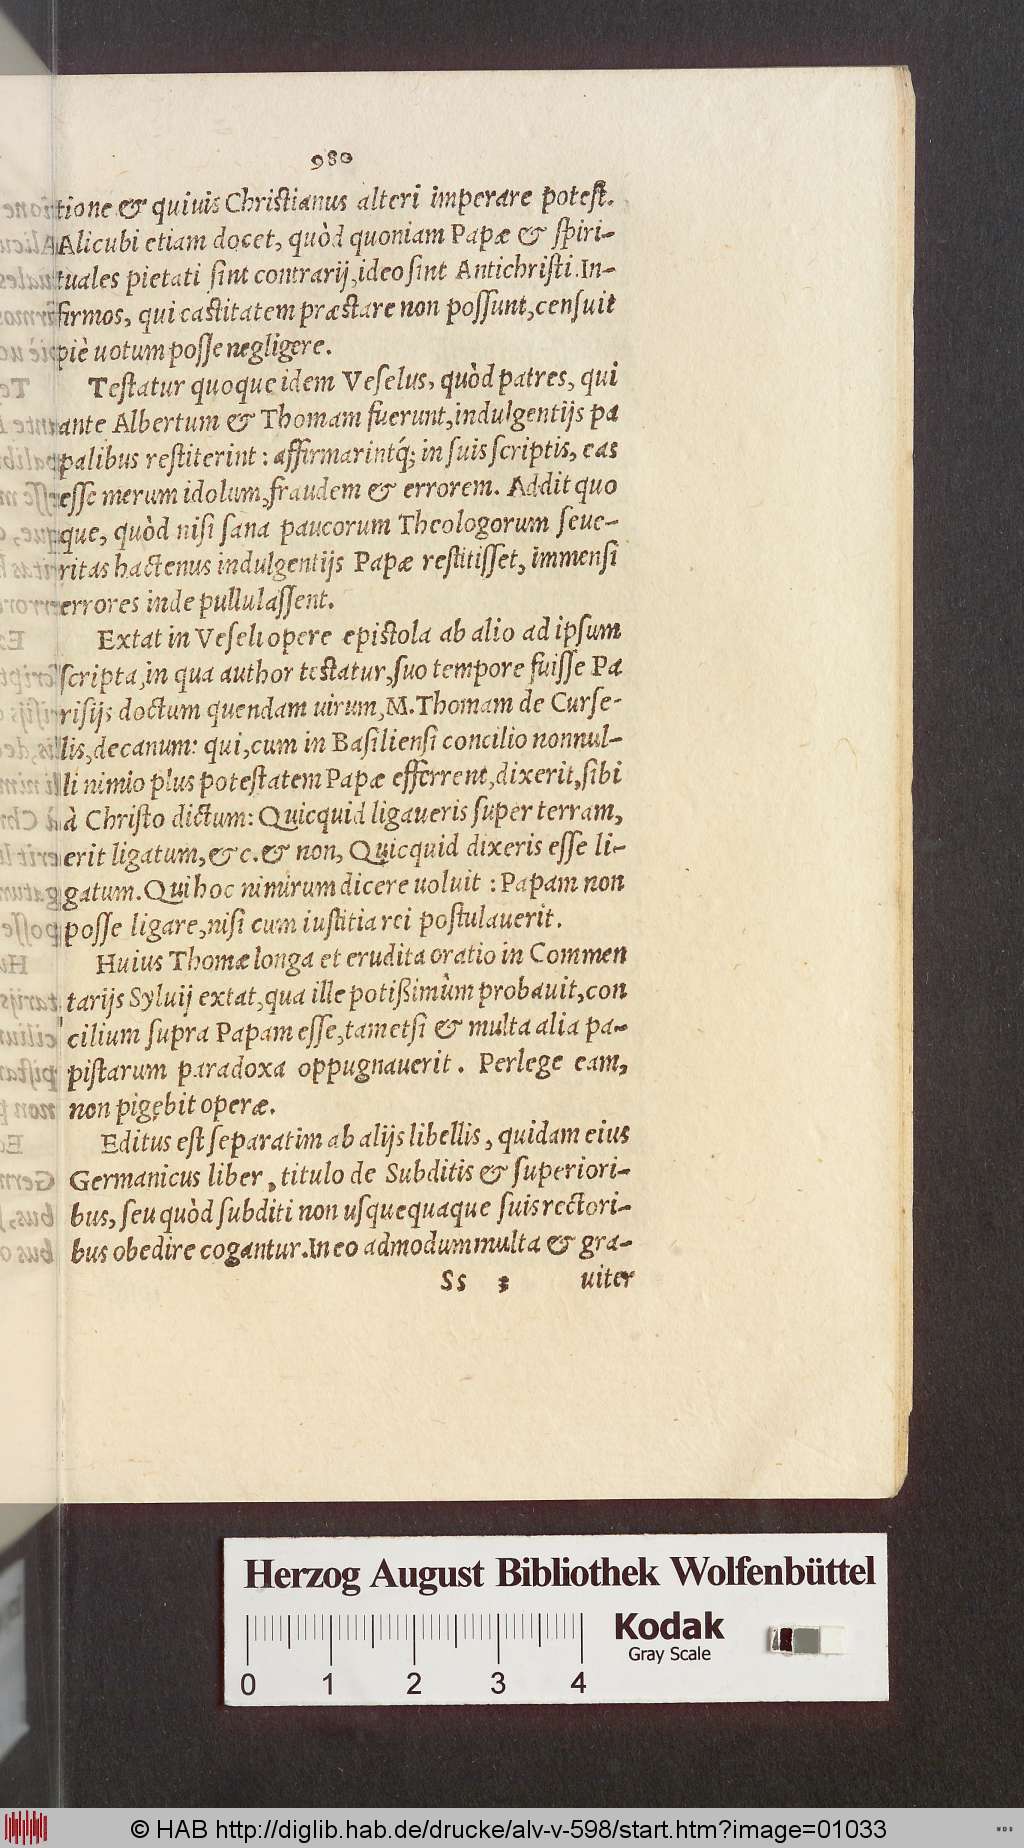 980
tione & quiuis Christianus alteri imperare potest.
Alicubi etiam docet, quòd quoniam Papæ & spiri-
tuales pietati sint contrarij, ideo sint Antichristi. In-
firmos, qui castitatem præstare non possunt, censuit
piè uotum posse negligere.
Testatur quoque idem Veselus, quòd patres, qui
ante Albertum & Thomam fuerunt, indulgentijs pa
palibus restiterint: affirmarintq́; in suis scriptis, eas
esse merum idolum, fraudem & errorem. Addit quo
que, quòd nisi sana paucorum Theologorum seue-
ritas hactenus indulgentijs Papæ restitisset, immensi
errores inde pullulassent.
Extat in Veseli opere epistola ab alio ad ipsum
scripta, in qua author testatur, suo tempore fuisse Pa
risijs doctum quendam uirum, M. Thomam de Curse-
lis, decanum: qui, cum in Basiliensi concilio nonnul-
li nimio plus potestatem Papæ efferrent, dixerit, sibi
à Christo dictum: Quicquid ligaueris super terram,
erit ligatum, &c. & non, Quicquid dixeris esse li-
gatum. Qui hoc nimirum dicere uoluit: Papam non
posse ligare, nisi cum iustitia rei postulauerit.
Huius Thomæ longa et erudita oratio in Commen
tarijs Syluij extat, qua ille potißimùm probauit, con
cilium supra Papam esse, tametsi & multa alia pa-
pistarum paradoxa oppugnauerit. Perlege eam,
non pigebit operæ.
Editus est separatim ab alijs libellis, quidam eius
Germanicus liber, titulo de Subditis & superiori-
bus, seu quòd subditi non usquequaque suis rectori-
bus obedire cogantur. In eo admodum multa & gra-
Ss 3 uiter
Herzog August Bibliothek Wolfenbüttel
Kodak
Gray Scale
0 1 2 3 4
© HAB http://diglib.hab.de/drucke/alv-v-598/start.htm?image=01033